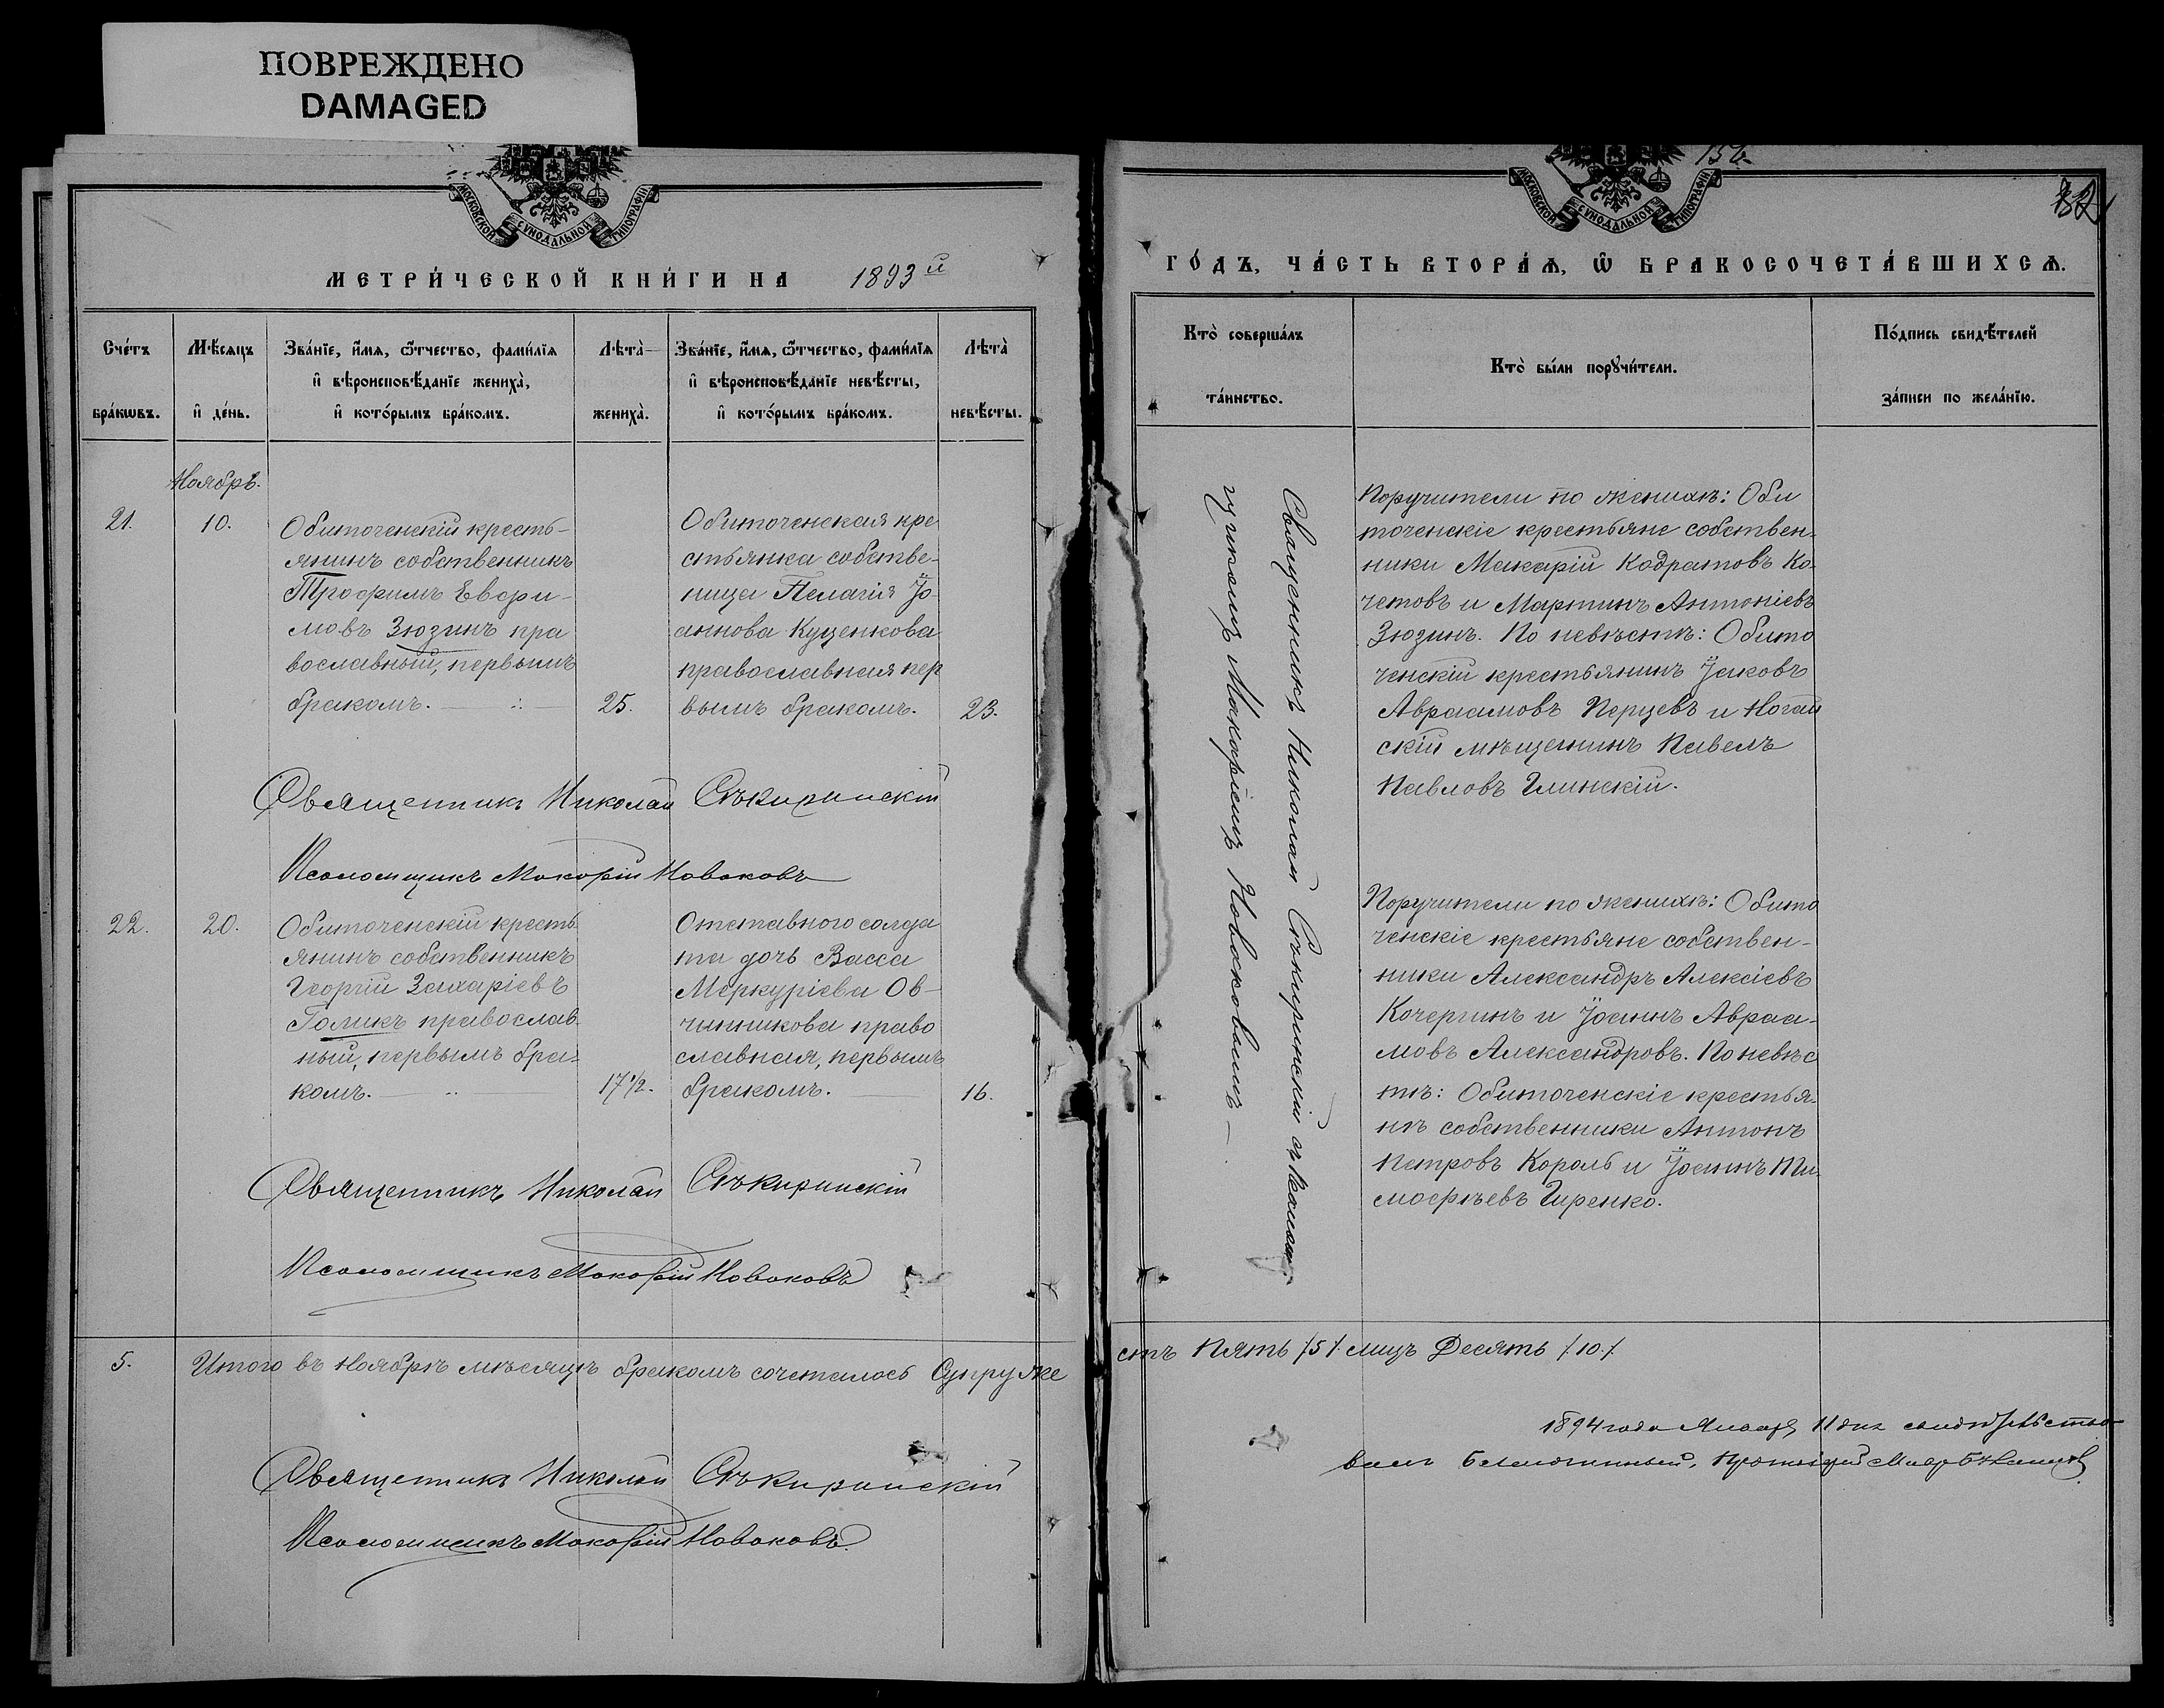 ПОВРЕЖДЕНО
DAMAGED
МОСКОВСКОЙ СѴНОДАЛЬНОЙ ТИПОГРАФІИ
МЕТРИ́ЧЕСКОЙ КНИ́ГИ НА 1893 й
Сче́тъ бра́кѡвъ.
Мѣ́сяцъ и҆ де́нь.
Зва́нїе, и҆́мѧ, ѻ҆́тчество, фамѝлїѧ
и҆ вѣроисповѣ́данїе жениха̀,
и҆ кото́рымъ бра́комъ.
Лѣта̀ жениха̀.
Зва́нїе, и҆́мѧ, ѻ҆́тчество, фамѝлїѧ
и҆ вѣроисповѣ́данїе невѣ́сты,
и҆ кото́рымъ бра́комъ.
Лѣта̀ невѣ́сты.
Ноябрь.
21.
10.
Обиточенскій кресть-
янинъ собственникъ
Трофимъ Евфи-
мовъ Зюзинъ пра
вославный, первымъ
бракомъ.
25.
Обиточенская кре
стьянка собстве-
ница Пелагія Іо-
аннова Куценкова
православная пер
вымъ бракомъ.
23.
Священникъ Николай Сѣкиринскій
Псаломщикъ Макарій Новаковъ
22.
20.
Обиточенскій кресть
янинъ собственникъ
Георгій Захаріевъ
Голикъ православ-
ный, первымъ бра-
комъ.
17 1/2.
Отставного солда
та дочь Васса
Меркуріева Ов-
чинникова право
славная, первымъ
бракомъ.
16.
Священникъ Николай Сѣкиринскій
Псаломщикъ Макарій Новаковъ
5.
Итого въ Ноябрѣ мѣсяцѣ бракомъ сочеталось Супруже
Священникъ Николай Сѣкиринскій
Псаломщикъ Макарій Новаковъ.
МОСКОВСКОЙ СѴНОДАЛЬНОЙ ТИПОГРАФІИ
ГО́ДЪ, ЧА́СТЬ ВТОРА́Ѧ, Ѽ БРАКОСОЧЕТА́ВШИХСѦ.
Кто̀ соверша́лъ
та́инство.
Кто̀ бы́ли порꙋчи́тели.
По́дпись свидѣ́телей
за́писи по жела́нїю.
Священникъ Николай Сѣкиринскій съ Псалом-
щикомъ Макаріемъ Новаковымъ
Поручители по женихѣ: Оби
точенскіе крестьяне собствен-
ники Макарій Кадратовъ Ко-
четовъ и Мартинъ Антоніевъ
Зюзинъ. По невѣстѣ: Обито
ченскій крестьянинъ Іаковъ
Авраамовъ Перцевъ и Ногай
скій мѣщанинъ Павелъ
Павловъ Глинскій.
Поручители по женихѣ: Обито
ченскіе крестьяне собствен-
ники Александръ Алексіевъ
Кочергинъ и Іоаннъ Авраа-
мовъ Александровъ. По невѣс
тѣ: Обиточенскіе крестья-
нѣ собственники Антонъ
Петровъ Король и Іоаннъ Ти-
мофѣевъ Гиренко.
ствъ Пять /5/. лицъ Десять /10./
1894 года Января 11 дня свидѣтельство-
валъ Благочинный, Протоіерей